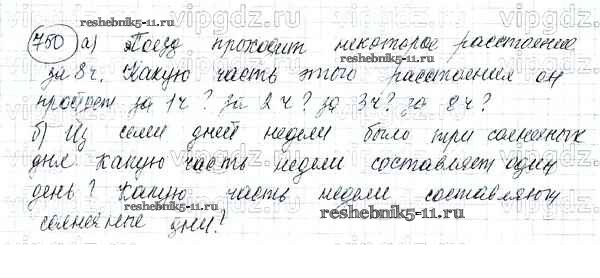 reshebnik5-11.ru
750 а) Поезд проходит некоторое расстояние
за 8 ч. Какую часть этого расстояния он
пройдет за 1 ч? за 2 ч? за 3 ч? за 8 ч?
б) Из семи дней недели было три солнечных
дня Какую часть недели составляет один
день? Какую часть недели составляют
солнечные дни?
reshebnik5-11.ru